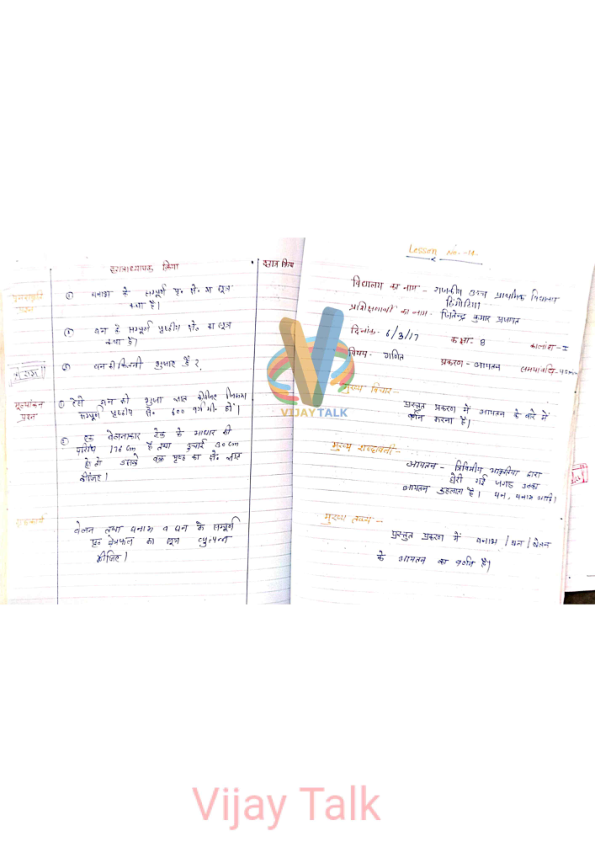 छात्राध्यापक क्रिया
छात्र क्रिया
पुनरावृत्ति
प्रश्न
① घनाभ के सम्पूर्ण पृ. क्षे. का सूत्र
क्या है।
② घन के सम्पूर्ण पृष्ठीय क्षे. का सूत्र
क्या है।
घन में कितनी भुजाएं हैं?
मूल्यांकन
प्रश्न
① ऐसे घन की भुजा ज्ञात कीजिए जिसका
सम्पूर्ण पृष्ठीय क्षे. 600 वर्ग मी. हो।
② एक बेलनाकार टैंक के आधार की
परिधि 176 cm है तथा ऊंचाई 30 cm
हो तो उसके वक्र पृष्ठ का क्षे. ज्ञात
कीजिए।
गृहकार्य
बेलन तथा घनाभ व घन के सम्पूर्ण
का सूत्र
कीजिए।
Lesson
विद्यालय का नाम - राजकीय उच्च प्राथमिक विद्यालय
प्रशिक्षणार्थी का नाम - जितेन्द्र कुमार
दिनांक- 6/3/17 कक्षा- 8 कालांश - I
विषय- गणित प्रकरण - आयतन
मुख्य विचार -
प्रस्तुत प्रकरण में आयतन के बारे में
वर्णन करना है।
मुख्य शब्दावली -
आयतन - त्रिविमीय आकृतियों द्वारा
घेरी गई जगह उनका
आयतन कहलाता है। घन, घनाभ आदि।
मुख्य तथ्य -
प्रस्तुत प्रकरण में घनाभ / घन / बेलन
के आयतन का वर्णन है।
VIJAY TALK
Vijay Talk